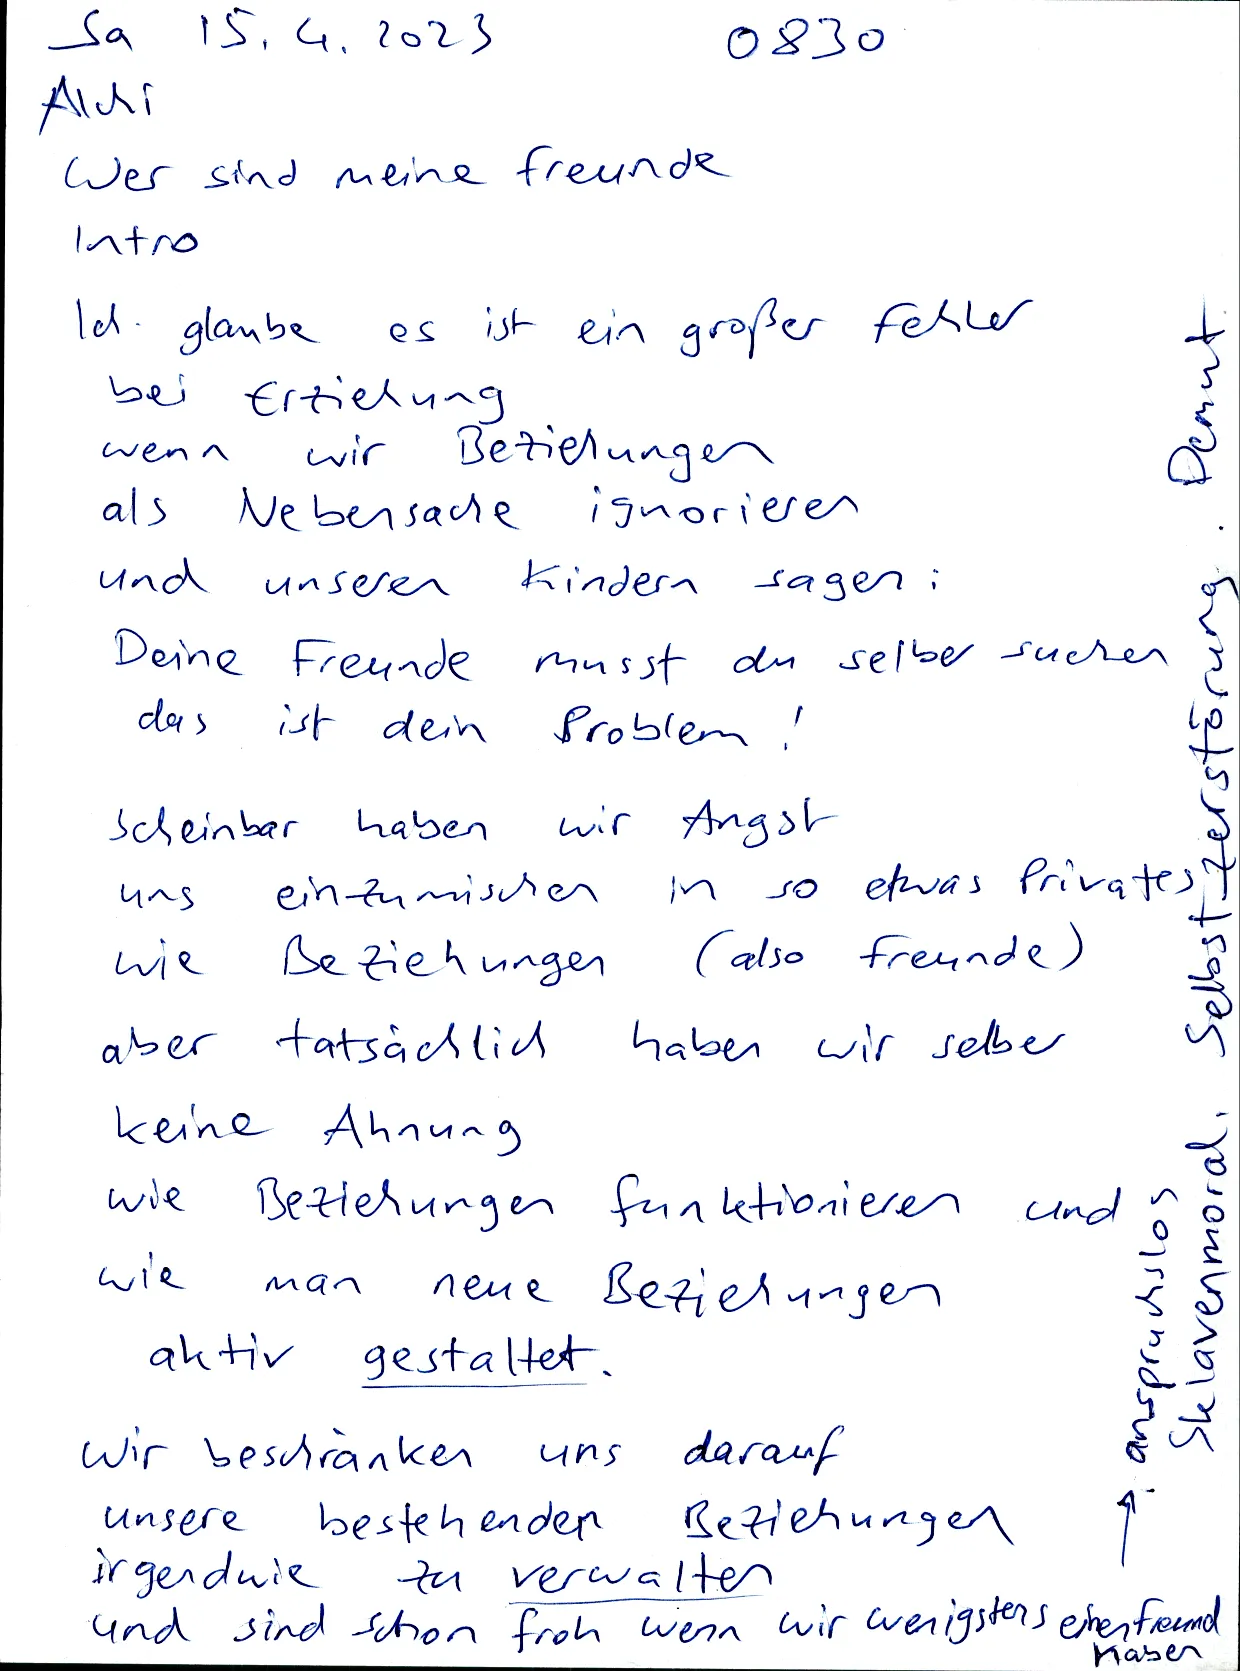 Sa 15.4.2023 0830
Alchi
Wer sind meine Freunde
Intro
Ich glaube es ist ein großer Fehler
bei Erziehung
wenn wir Beziehungen
als Nebensache ignorieren
und unseren Kindern sagen:
Deine Freunde musst du selber suchen
das ist dein Problem!
scheinbar haben wir Angst
uns einzumischen in so etwas Privates
wie Beziehungen (also Freunde)
aber tatsächlich haben wir selber
keine Ahnung
wie Beziehungen funktionieren und
wie man neue Beziehungen
aktiv gestaltet.
Wir beschränken uns darauf
unsere bestehenden Beziehungen
irgendwie zu verwalten
und sind schon froh wenn wir wenigstens einen Freund
haben
→ . anspruchslos
Sklavenmoral. Selbstzerstörung. Demut.